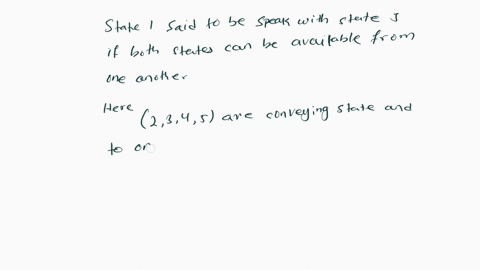 State I said to be speak with state J
if both states can be available from
one another.
Here (2,3,4,5) are conveying state and
to or